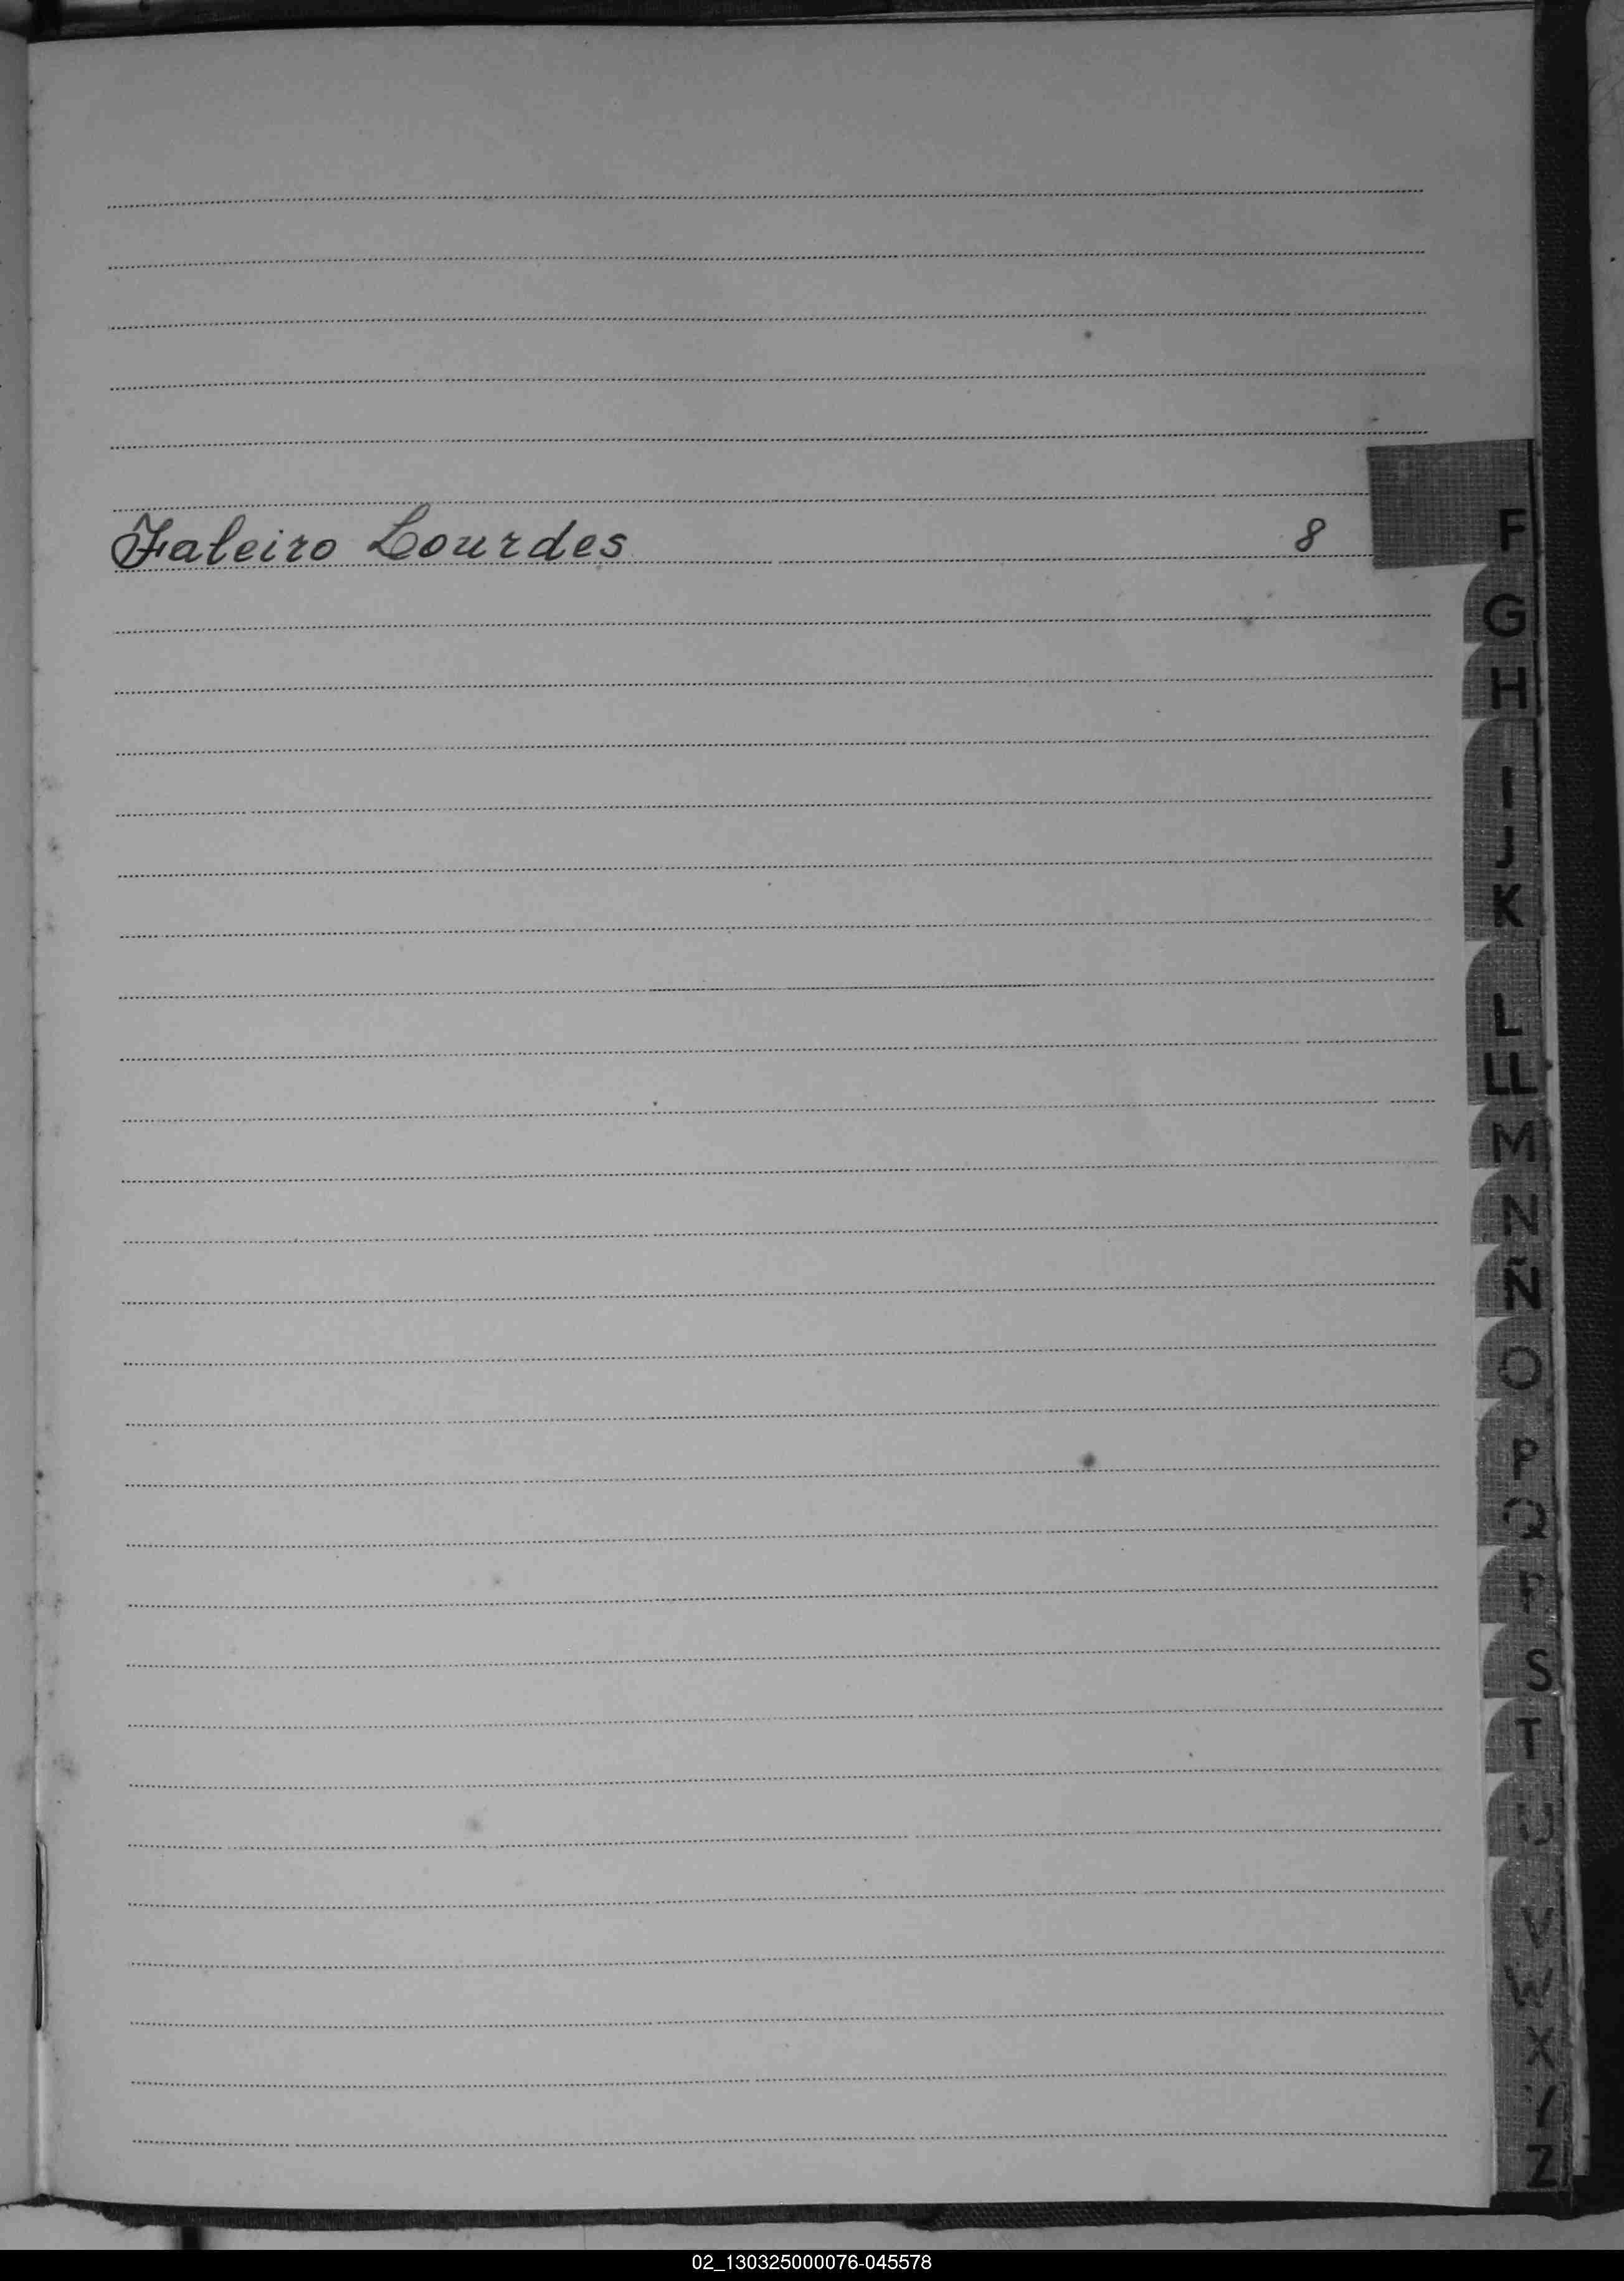 Faleiro Lourdes 8
F
G
H
I
J
K
L
LL
M
N
Ñ
O
P
Q
R
S
T
U
V
W
X
Y
Z
02_130325000076-045578